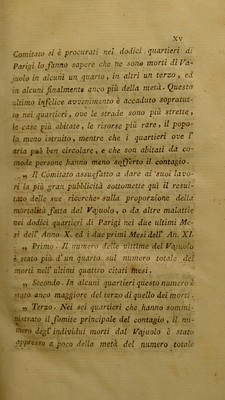 XV
Comitato si è procurati nei dodici quartieri di
Parigi lo fanno sapere che ne sono morti di Va-
juolo in alcuni un quarto, in altri un terzo, ed
in alcuni finalmente anco più della metà. Questo
ultimo infelice avvenimento è accaduto sopratut-
to nei quartieri, ove le strade sono più strette,
le case più abitate, le risorse più rare, il popo-
lo meno istruito, mentre che i quartieri ove l'
aria può ben circolare, e che son abitati da co-
mode persone hanno meno sofferto il contagio.
„ Il Comitato assuefatto a dare ai suoi lavo-
ri la più gran pubblicità sottomette quì il resul-
tato delle sue ricerche sulla proporzione della
mortalità fatta dal Vajuolo, o da altre malattie
nei dodici quartieri di Parigi nei due ultimi Me-
si dell' Anno X. ed i due primi Mesi dell' An. XI.
„ Primo. Il numero delle vittime del Vajuolo
è stato più d'un quarto sul numero totale dei
morti nell'ultimi quattro citati mesi.
„ Secondo. In alcuni quartieri questo numero è
stato anco maggiore del terzo di quello dei morti.
„ Terzo. Nei sei quartieri che hanno sommi-
nistrato il fomite principale del contagio, il nu-
mero degl' individui morti dal Vajuolo è stato
appresso a poco della metà del numero totale